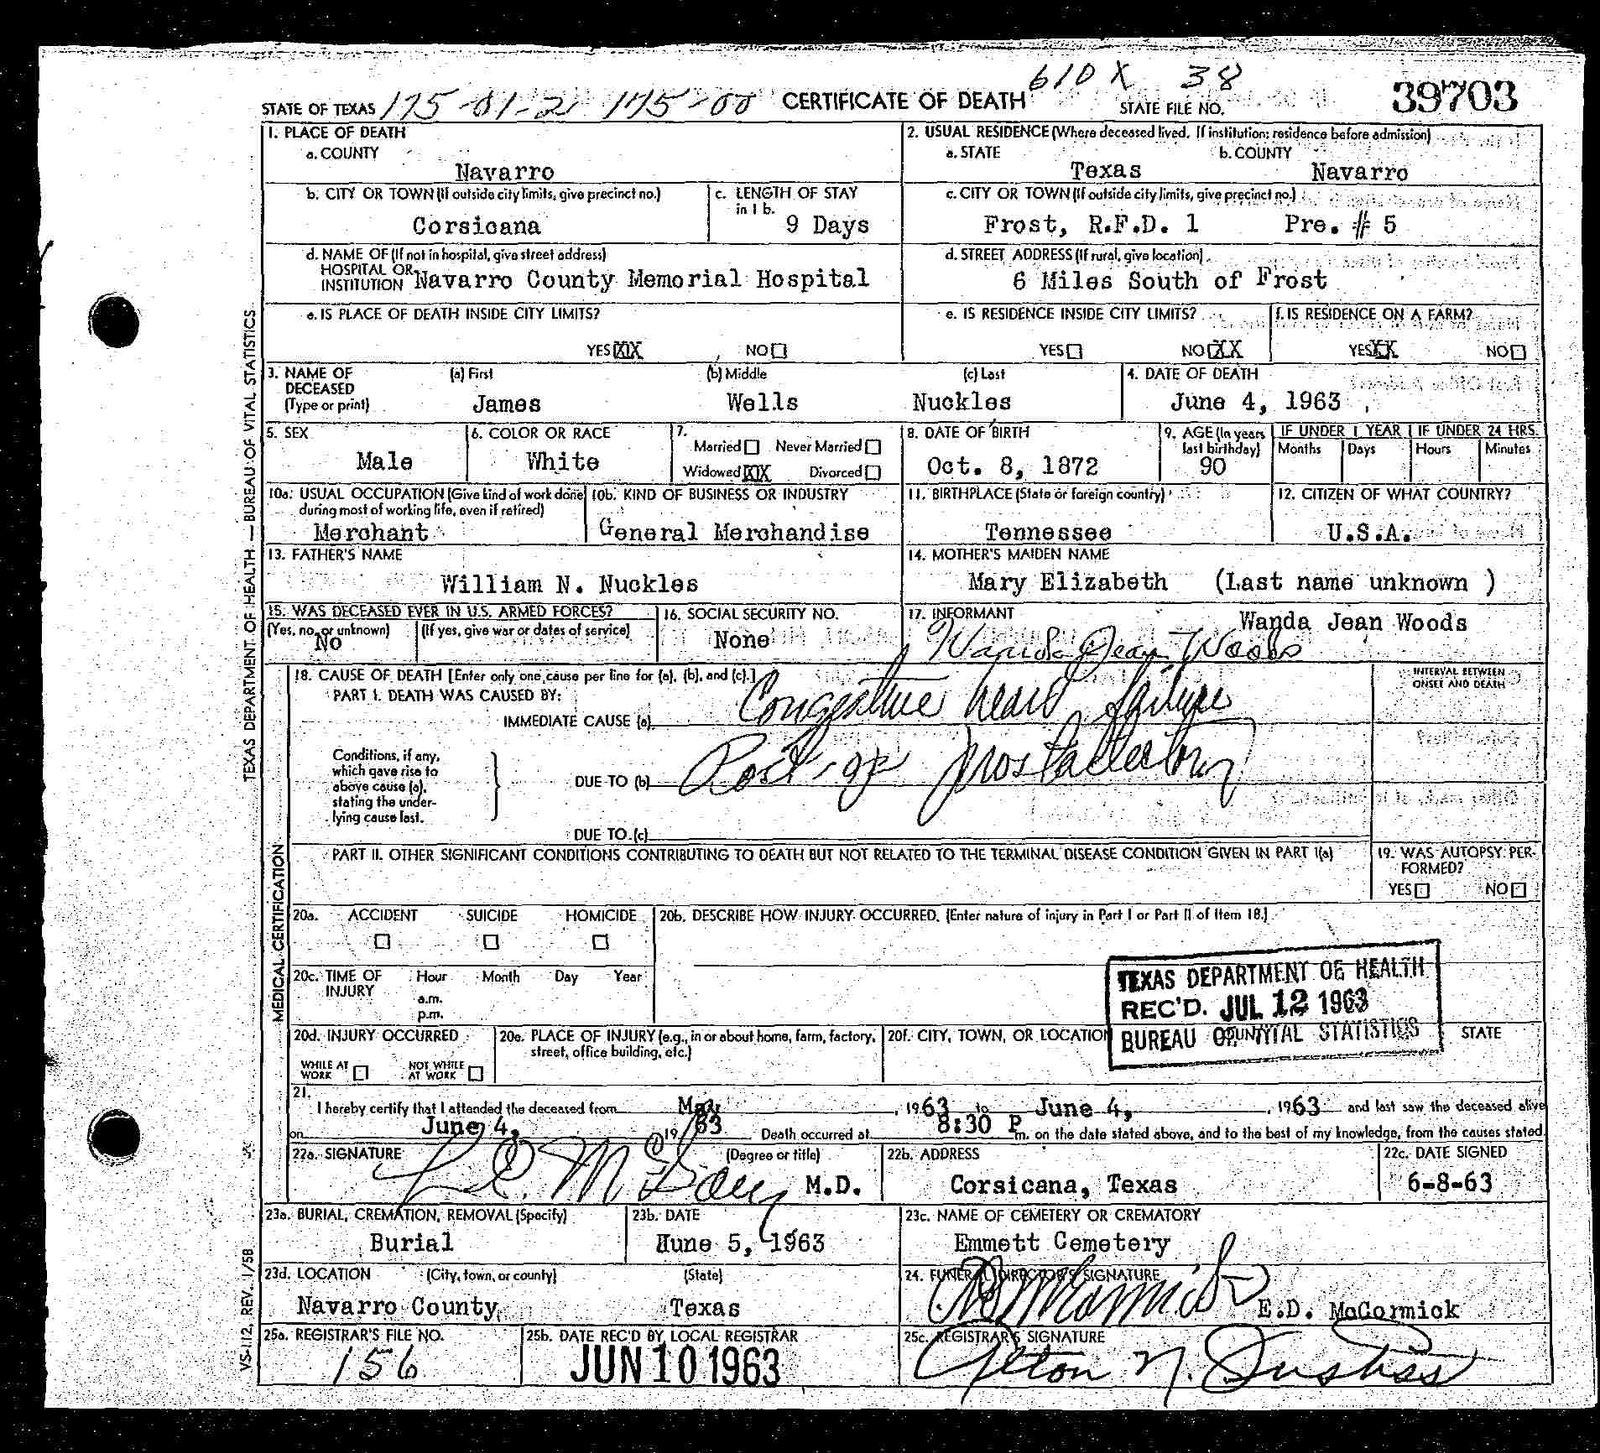 610 X 38
STATE OF TEXAS 175-01-2 175-00 CERTIFICATE OF DEATH STATE FILE NO. 39703
1. PLACE OF DEATH
a. COUNTY
Navarro
2. USUAL RESIDENCE (Where deceased lived. If institution: residence before admission)
a. STATE b. COUNTY
Texas Navarro
b. CITY OR TOWN (If outside city limits, give precinct no.)
Corsicana
c. LENGTH OF STAY
in 1 b.
9 Days
c. CITY OR TOWN (If outside city limits, give precinct no.)
Frost, R.F.D. 1 Pre. # 5
d. NAME OF (If not in hospital, give street address)
HOSPITAL OR
INSTITUTION Navarro County Memorial Hospital
d. STREET ADDRESS (If rural, give location)
6 Miles South of Frost
e. IS PLACE OF DEATH INSIDE CITY LIMITS?
YES XX NO
e. IS RESIDENCE INSIDE CITY LIMITS?
YES NO XX
f. IS RESIDENCE ON A FARM?
YES XX NO
3. NAME OF
DECEASED
(Type or print)
(a) First (b) Middle (c) Last
James Wells Nuckles
4. DATE OF DEATH
June 4, 1963
5. SEX
Male
6. COLOR OR RACE
White
7.
Married Never Married
Widowed XX Divorced
8. DATE OF BIRTH
Oct. 8, 1872
9. AGE (In years
last birthday)
90
IF UNDER 1 YEAR IF UNDER 24 HRS.
Months Days Hours Minutes
10a. USUAL OCCUPATION (Give kind of work done
during most of working life, even if retired)
Merchant
10b. KIND OF BUSINESS OR INDUSTRY
General Merchandise
11. BIRTHPLACE (State or foreign country)
Tennessee
12. CITIZEN OF WHAT COUNTRY?
U.S.A.
13. FATHER'S NAME
William N. Nuckles
14. MOTHER'S MAIDEN NAME
Mary Elizabeth (Last name unknown )
15. WAS DECEASED EVER IN U.S. ARMED FORCES?
(Yes, no, or unknown) (If yes, give war or dates of service)
No
16. SOCIAL SECURITY NO.
None
17. INFORMANT Wanda Jean Woods
Wanda Jean Woods
18. CAUSE OF DEATH [Enter only one cause per line for (a), (b), and (c).]
PART I. DEATH WAS CAUSED BY:
IMMEDIATE CAUSE (a) Congestive heart failure
INTERVAL BETWEEN
ONSET AND DEATH
Conditions, if any,
which gave rise to
above cause (a),
stating the under-
lying cause last.
DUE TO (b) Post-op prostatectomy
DUE TO (c)
PART II. OTHER SIGNIFICANT CONDITIONS CONTRIBUTING TO DEATH BUT NOT RELATED TO THE TERMINAL DISEASE CONDITION GIVEN IN PART I(a)
19. WAS AUTOPSY PER-
FORMED?
YES NO
20a. ACCIDENT SUICIDE HOMICIDE
20b. DESCRIBE HOW INJURY OCCURRED. (Enter nature of injury in Part I or Part II of Item 18.)
20c. TIME OF
INJURY
Hour Month Day Year
a.m.
p.m.
TEXAS DEPARTMENT OF HEALTH
REC'D. JUL 12 1963
BUREAU OF VITAL STATISTICS
20d. INJURY OCCURRED
WHILE AT
WORK
NOT WHILE
AT WORK
20e. PLACE OF INJURY (e.g., in or about home, farm, factory,
street, office building, etc.)
20f. CITY, TOWN, OR LOCATION COUNTY STATE
21.
I hereby certify that I attended the deceased from May, 1963 to June 4, 1963 and last saw the deceased alive
on June 4, 1963 Death occurred at 8:30 P m. on the date stated above, and to the best of my knowledge, from the causes stated.
22a. SIGNATURE (Degree or title)
M.D.
22b. ADDRESS
Corsicana, Texas
22c. DATE SIGNED
6-8-63
23a. BURIAL, CREMATION, REMOVAL (Specify)
Burial
23b. DATE
Hune 5, 1963
23c. NAME OF CEMETERY OR CREMATORY
Emmett Cemetery
23d. LOCATION (City, town, or county) (State)
Navarro County, Texas
24. FUNERAL DIRECTOR'S SIGNATURE
E.D. McCormick
25a. REGISTRAR'S FILE NO.
156
25b. DATE REC'D BY LOCAL REGISTRAR
JUN 10 1963
25c. REGISTRAR'S SIGNATURE
TEXAS DEPARTMENT OF HEALTH — BUREAU OF VITAL STATISTICS
MEDICAL CERTIFICATION
VS-112, REV. 1/58